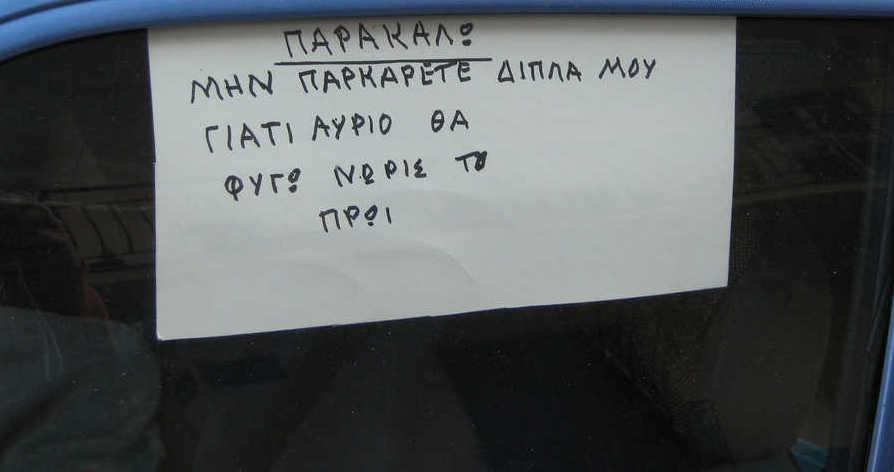 ΠΑΡΑΚΑΛΩ
ΜΗΝ ΠΑΡΚΑΡΕΤΕ ΔΙΠΛΑ ΜΟΥ
ΓΙΑΤΙ ΑΥΡΙΟ ΘΑ
ΦΥΓΩ ΝΩΡΙΣ ΤΟ
ΠΡΩΙ